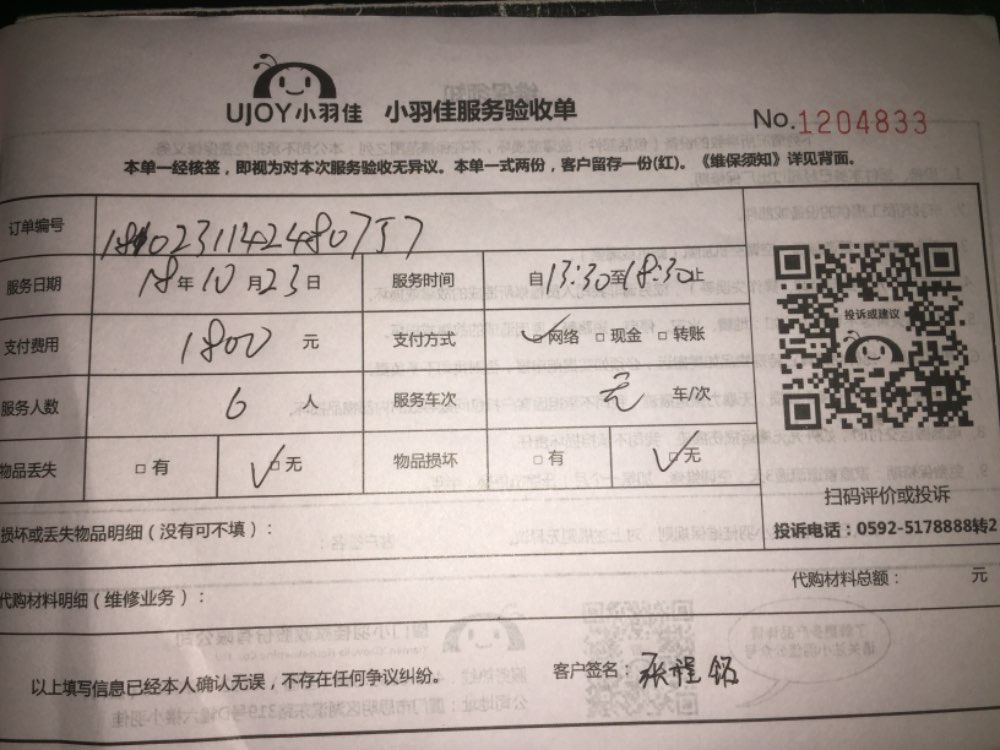 UJOY小羽佳 小羽佳服务验收单
No.1204833
本单一经核签，即视为对本次服务验收无异议。本单一式两份，客户留存一份(红)。《维保须知》详见背面。
订单编号
服务日期 18年10月23日 服务时间 自13:30至18:30止
支付费用 1800 元 支付方式 ☑网络 □现金 □转账
投诉或建议
服务人数 6 人 服务车次 车/次
物品丢失 □有 ☑无 物品损坏 □有 ☑无
扫码评价或投诉
损坏或丢失物品明细（没有可不填）：
投诉电话：0592-5178888转2
代购材料明细（维修业务）：
代购材料总额： 元
以上填写信息已经本人确认无误，不存在任何争议纠纷。
客户签名：